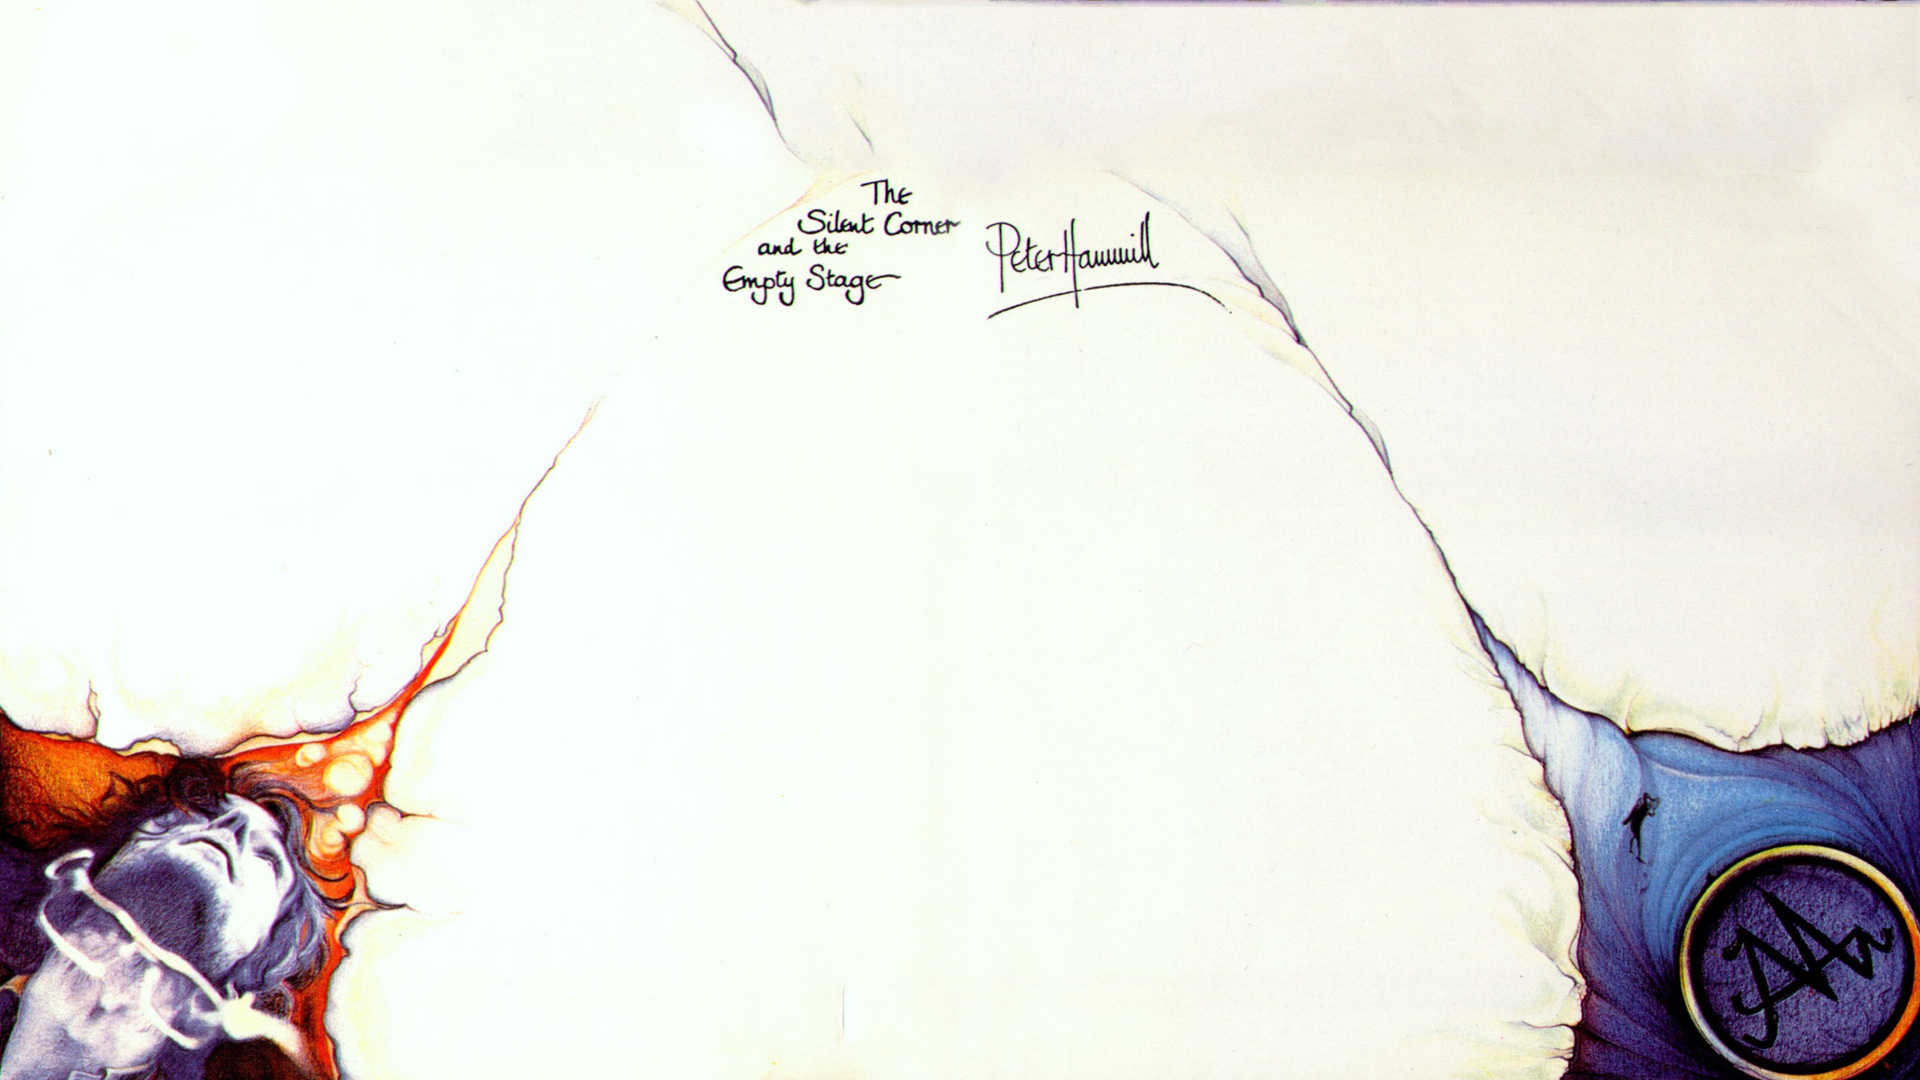 The
Silent Corner
and the
Empty Stage
Peter Hammill